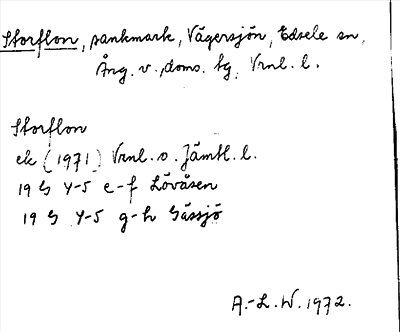 Storflon, sankmark, Vägersjön, Edsele sn,
Ång. v. doms. tg, Vrnl. l.
Storflon
ek (1971) Vrnl. o. Jämtl. l.
19 G Y-5 e-f Lövåsen
19 G Y-5 g-h Gåssjö
A.-L. W. 1972.